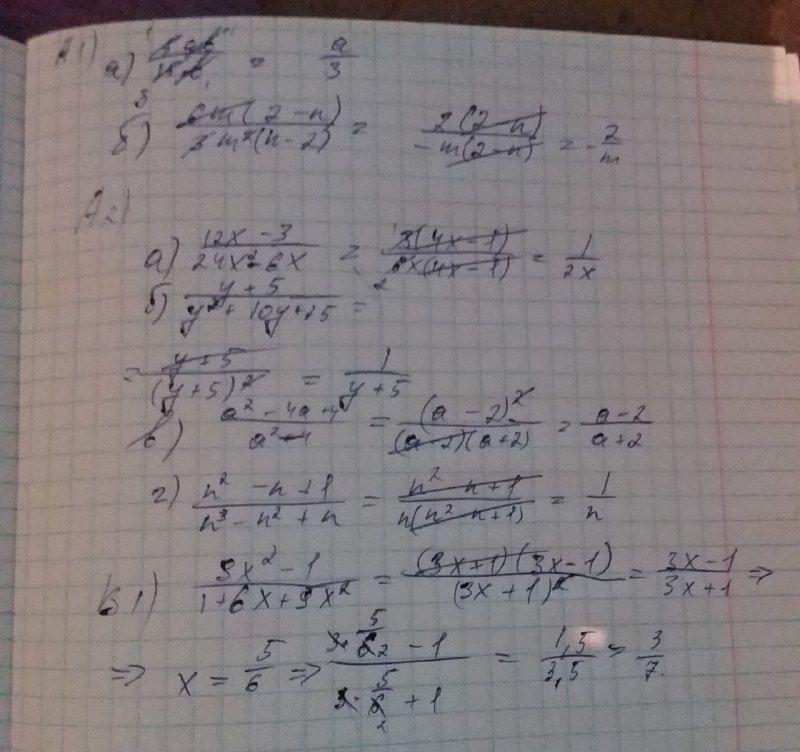 А1) а) 5ab/15b = a/3
б) 6m(2-n)/3m²(n-2) = 2(2-n)/-m(2-n) = -2/m
А2)
а) 12x-3/24x²-6x = 3(4x-1)/6x(4x-1) = 1/2x
б) y+5/y²+10y+25 =
= y+5/(y+5)² = 1/y+5
в) a²-4a+4/a²-4 = (a-2)²/(a-2)(a+2) = a-2/a+2
г) n²-n+1/n³-n²+n = n²-n+1/n(n²-n+1) = 1/n
В1) 9x²-1/1+6x+9x² = (3x+1)(3x-1)/(3x+1)² = 3x-1/3x+1 =>
=> x = 5/6 => 3·5/6-1/3·5/6+1 = 1,5/3,5 = 3/7.